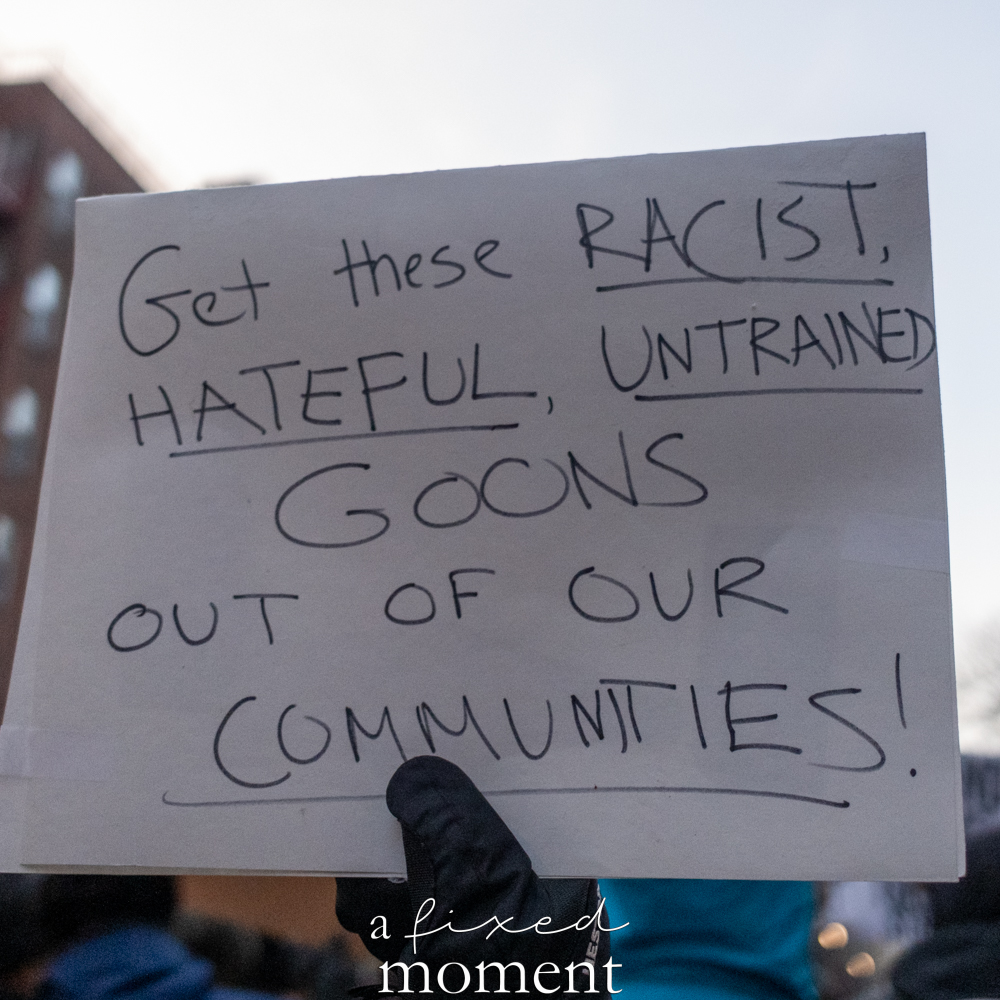 Get these RACIST,
HATEFUL, UNTRAINED
GOONS
OUT OF OUR
COMMUNITIES!
a fixed
moment